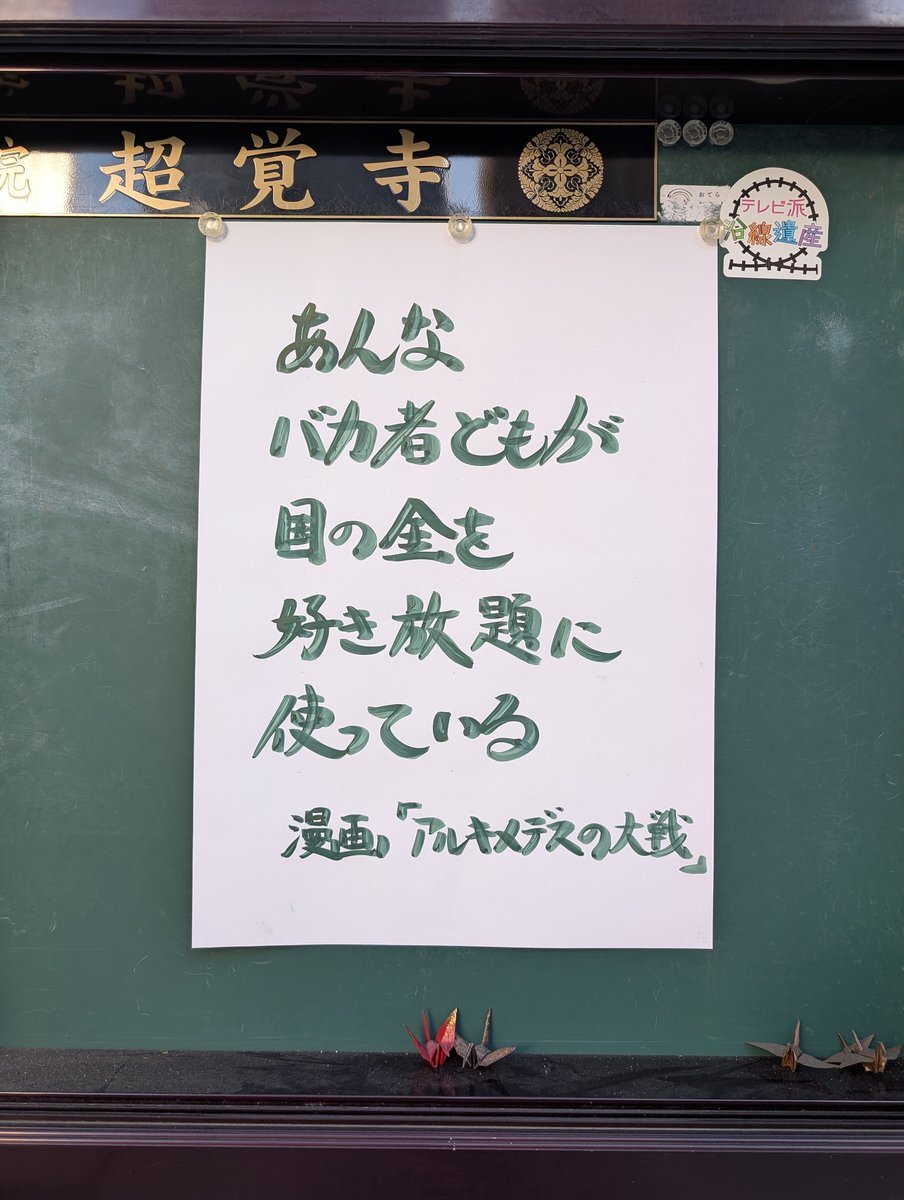 院 超覚寺
おてら
テレビ派
沿線遺産
あんな
バカ者どもが
国の金を
好き放題に
使っている
漫画「アルキメデスの大戦」